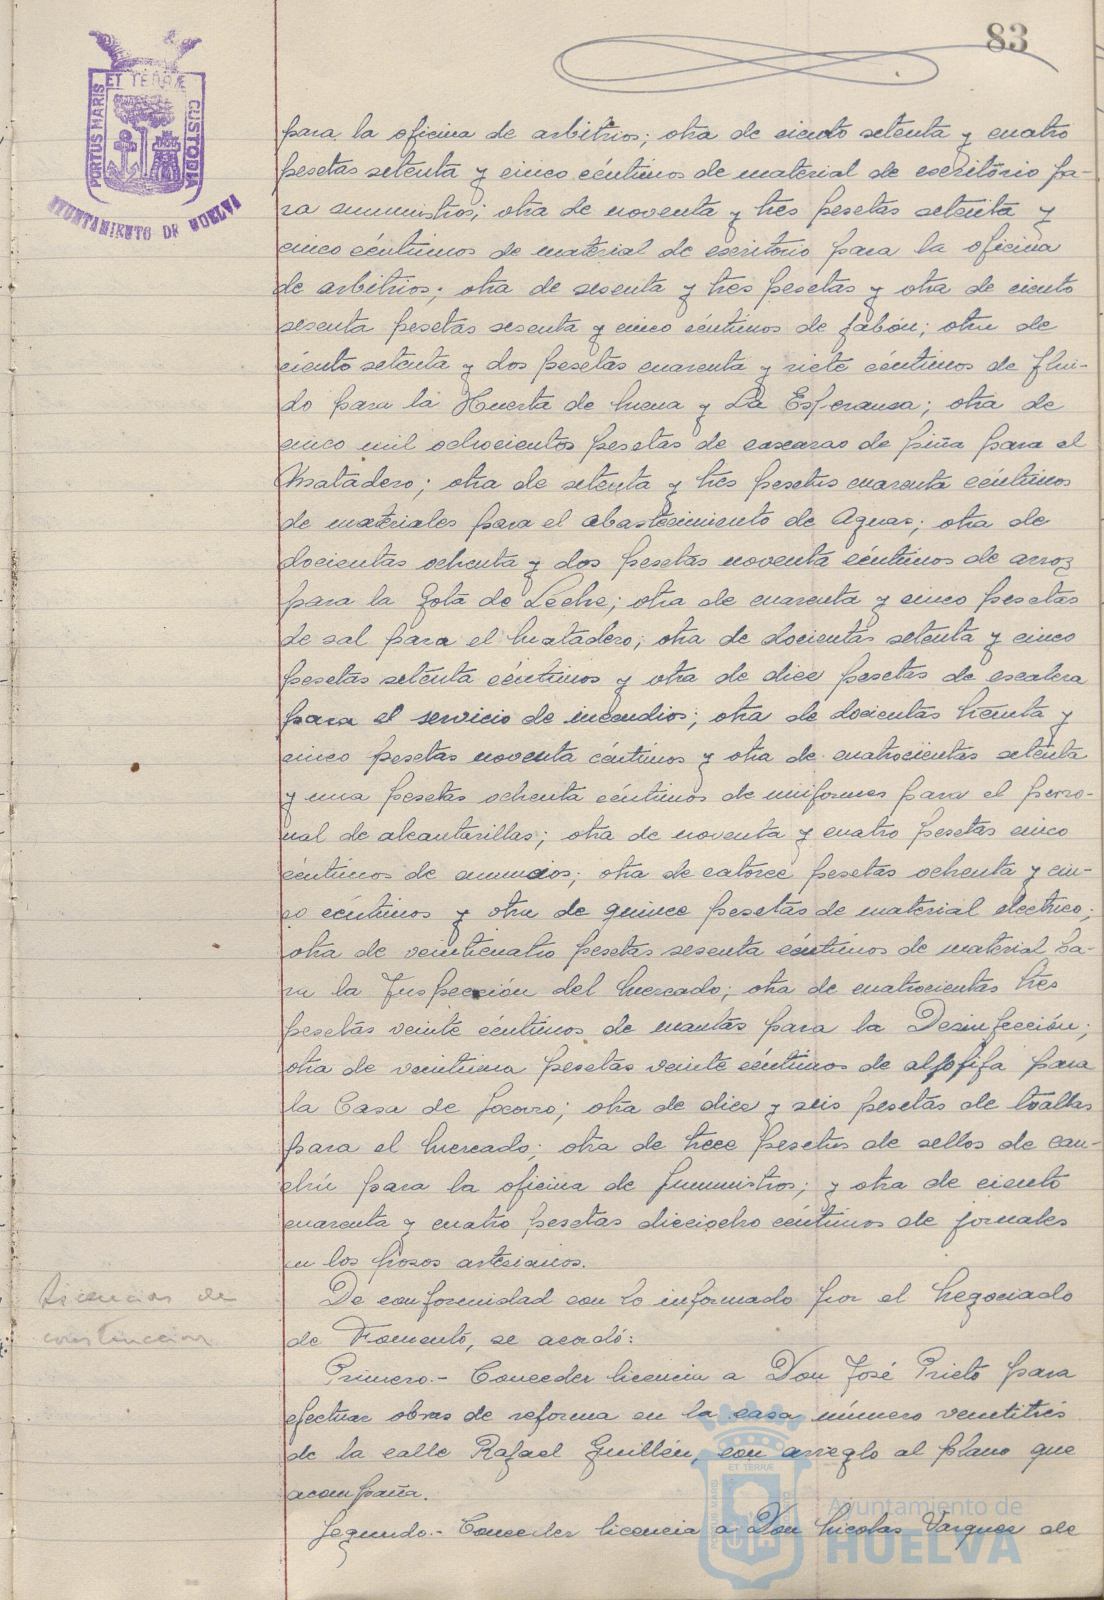 83
PORTUS MARIS ET TERRÆ CUSTODIA
AYUNTAMIENTO DE HUELVA
para la oficina de arbitrios; otra de ciento setenta y cuatro
pesetas setenta y cinco céntimos de material de escritorio pa-
ra suministros; otra de noventa y tres pesetas setenta y
cinco céntimos de material de escritorio para la oficina
de arbitrios; otra de sesenta y tres pesetas y otra de ciento
sesenta pesetas sesenta y cinco céntimos de jabón; otra de
ciento setenta y dos pesetas cuarenta y siete céntimos de flui-
do para la Huerta de Mena y La Esperanza; otra de
cinco mil ochocientos pesetas de cascaras de piña para el
Matadero; otra de setenta y tres pesetas cuarenta céntimos
de materiales para el abastecimiento de Aguas; otra de
docientas ochenta y dos pesetas noventa céntimos de arroz
para la Gota de Leche; otra de cuarenta y cinco pesetas
de sal para el Matadero; otra de docientas setenta y cinco
pesetas setenta céntimos y otra de diez pesetas de escalera
para el servicio de incendios; otra de docientas treinta y
cinco pesetas noventa céntimos y otra de cuatrocientas setenta
y una pesetas ochenta céntimos de uniformes para el perso-
nal de alcantarillas; otra de noventa y cuatro pesetas cinco
céntimos de anuncios; otra de catorce pesetas ochenta y cin-
co céntimos y otra de quince pesetas de material electrico;
otra de veinticuatro pesetas sesenta céntimos de material pa-
ra la Inspección del Mercado; otra de cuatrocientas tres
pesetas veinte céntimos de mantas para la Desinfección;
otra de veintiuna pesetas veinte céntimos de alfofifa para
la Casa de Socorro; otra de diez y seis pesetas de toallas
para el Mercado; otra de trece pesetas de sellos de cau-
chú para la oficina de Suministros; y otra de ciento
cuarenta y cuatro pesetas dieciocho céntimos de jornales
en los pozos artesianos.
Licencias de
construccion
De conformidad con lo informado por el Negociado
de Fomento, se acordó:
Primero.- Conceder licencia a Don José Prieto para
efectuar obras de reforma en la casa número veintitrés
de la calle Rafael Guillén, con arreglo al plano que
acompaña.
Segundo.- Conceder licencia a Don Nicolas Vazquez de
Ayuntamiento de
HUELVA